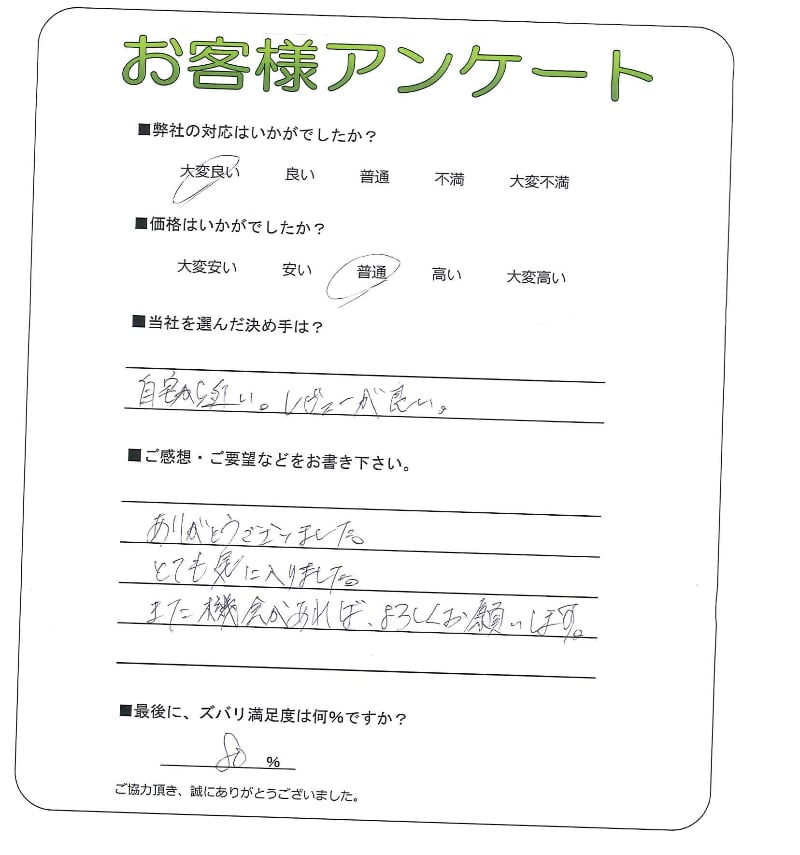 お客様アンケート
■弊社の対応はいかがでしたか？
大変良い 良い 普通 不満 大変不満
■価格はいかがでしたか？
大変安い 安い 普通 高い 大変高い
■当社を選んだ決め手は？
自宅から近い。レヴューが良い。
■ご感想・ご要望などをお書き下さい。
ありがとうございました。
とても気に入りました。
また機会があれば、よろしくお願いします。
■最後に、ズバリ満足度は何%ですか？
80 %
ご協力頂き、誠にありがとうございました。